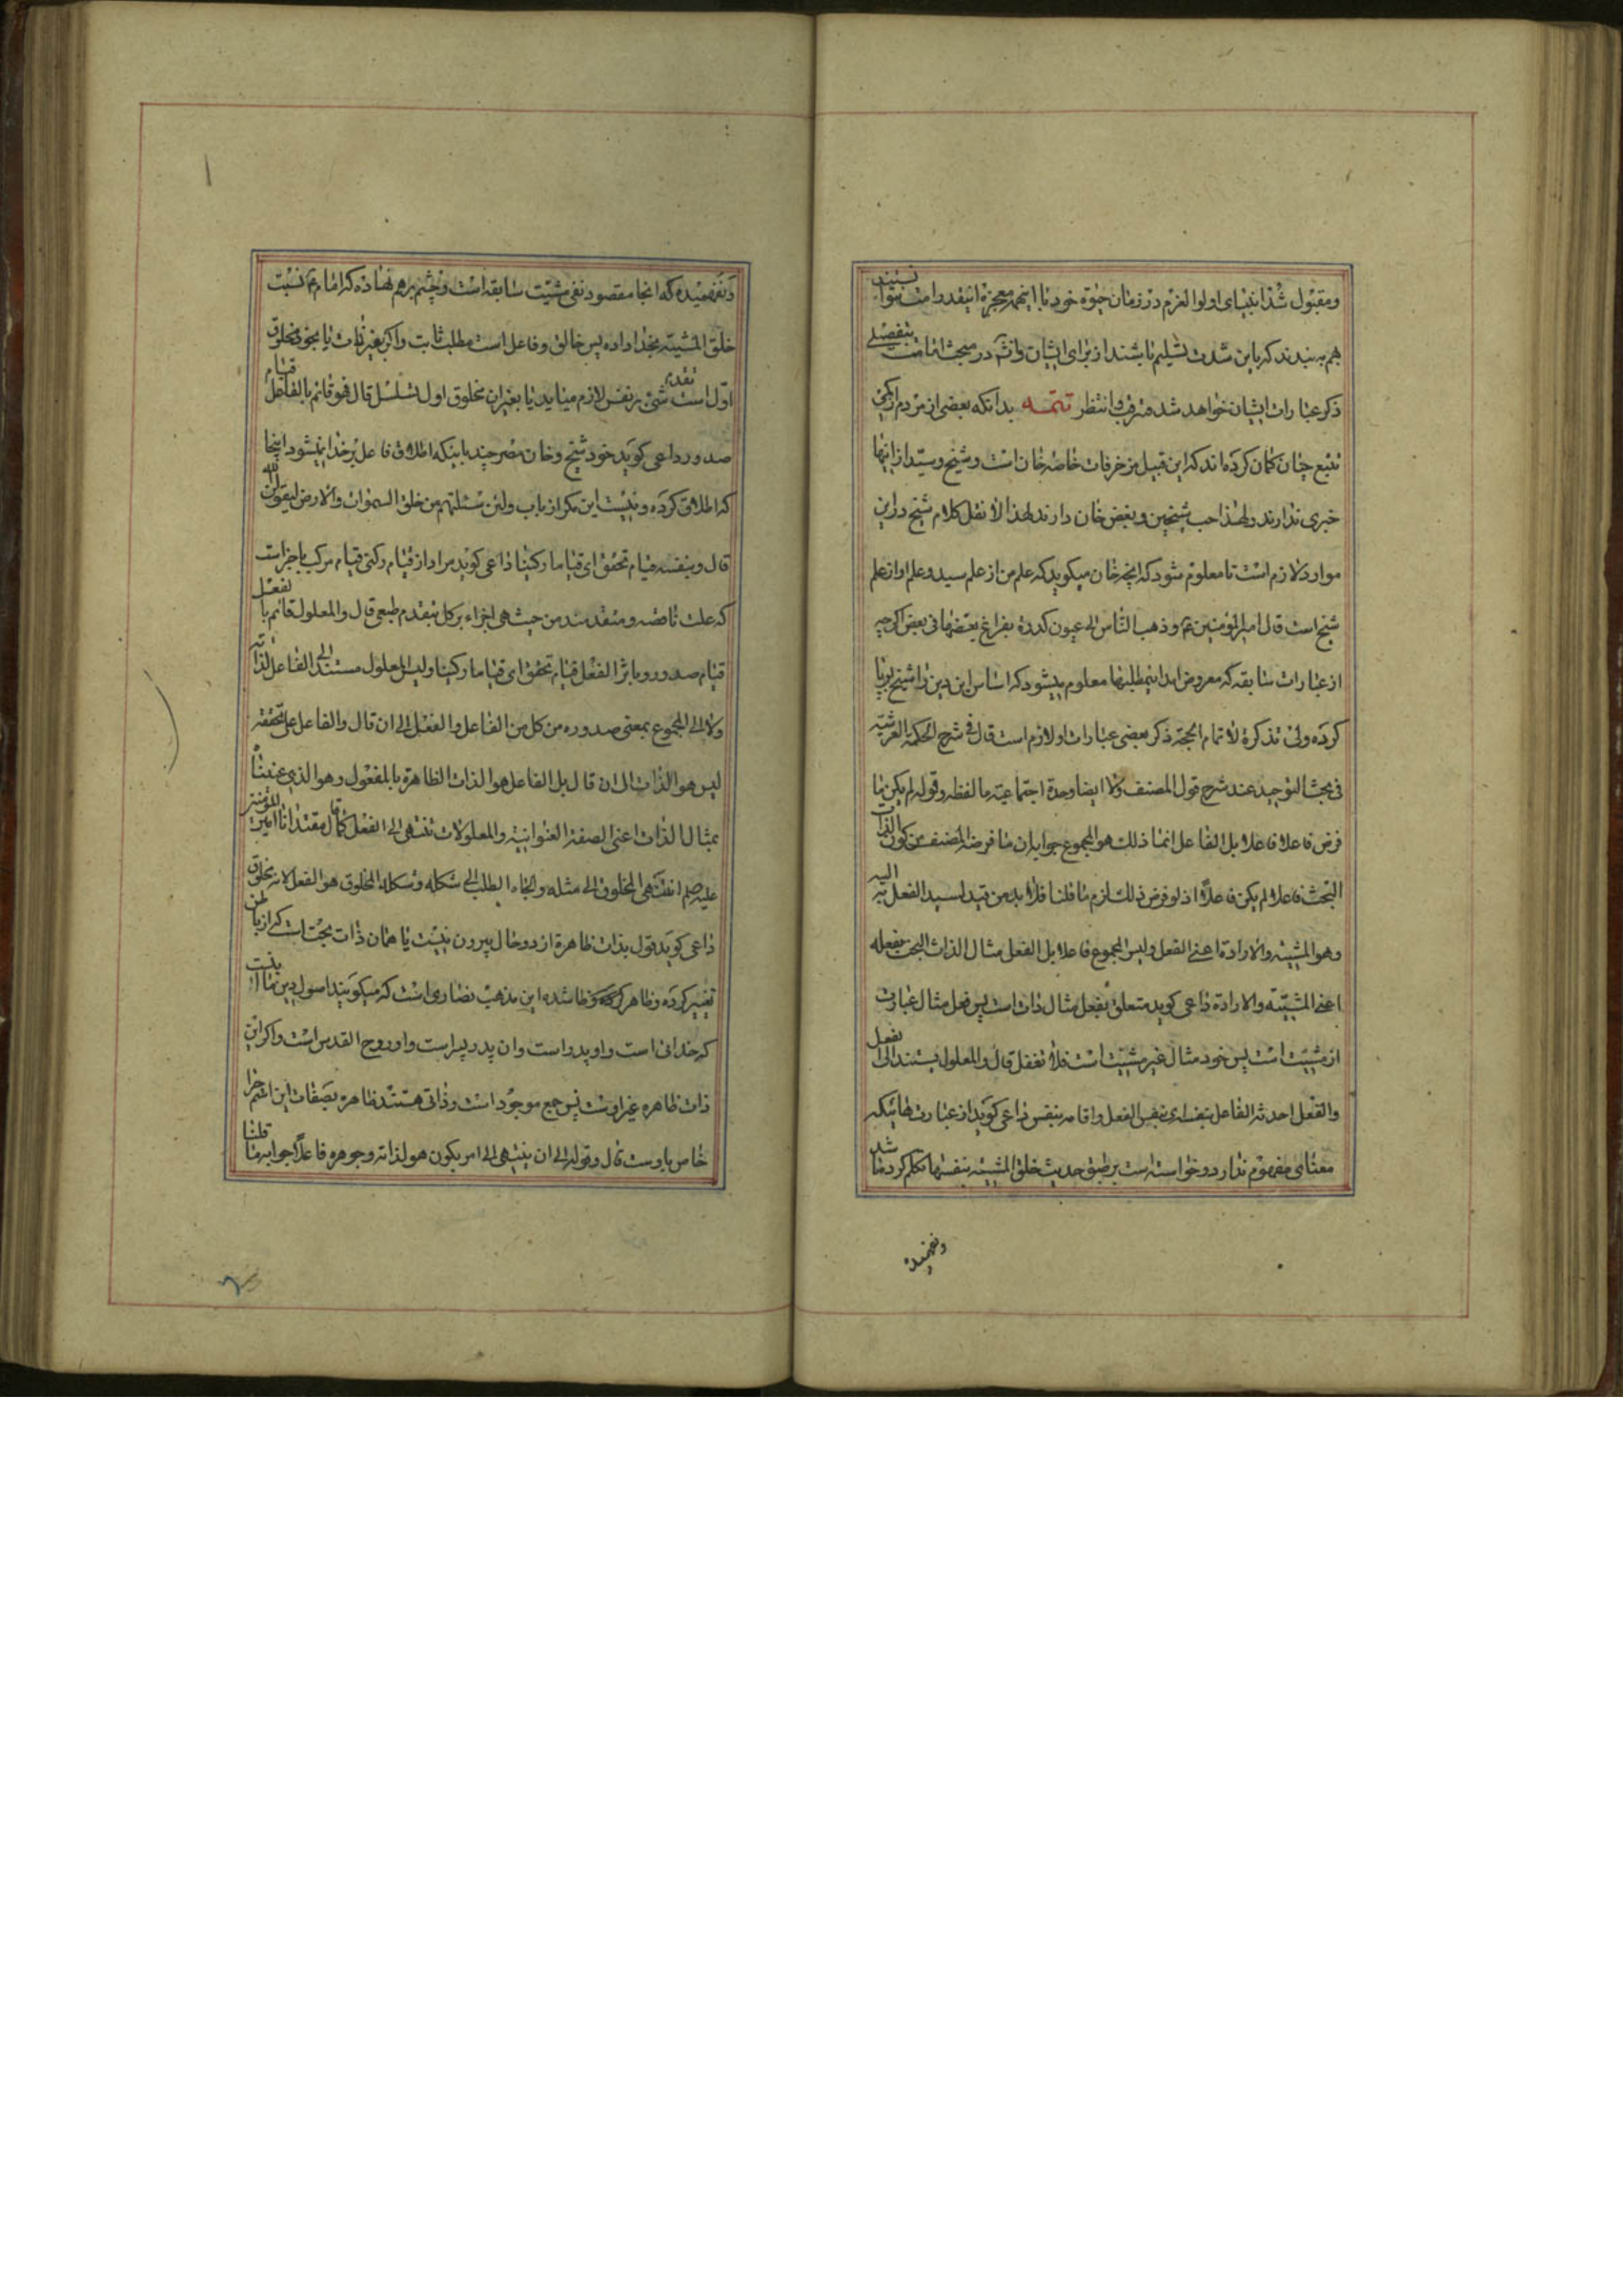 ومقبول شد انبیای اولوا العزم در زمان حیوة خود با اینهمه معجزه اینقدر امت نتوانستند
هم به بندند که باین شدت تسلیم نا باشند از برای ایشان وانشء در مبحث امامت بتفصیلی
ذکر عبارات ایشان خواهد شد مترقب وانتظر تتمه بدانکه بعضی از مردم از کمی
تتبع چنان کمان کرده اند که این قبیل مزخرفات خاصه خان است و شیخ و سید از اینها
خبری ندارند ولهذا حب شیخین و بغض خان دارند لهذا لا نقل کلام شیخ در این
موارد لازم است تا معلوم شود که انچه خان میکوید که علم من از علم سید و علم او از علم
شیخ است قال امیر المؤمنین ع وذهب الناس الی عیون کدرة یفرغ بعضها فی بعض اکر چه
از عبارات سابقه که معروض امد اینمطلبها معلوم میشود که اساس این دین را شیخ برپا
کرده ولی تذکرة لاتمام الحجة ذکر بعضی عبارات او لازم است قال فی شرح الحکمة العرشیة
فی مبحث التوحید عند شرح قول المصنف ولا ایضا وحدة اجتماعیة ما لفظه وقوله لم یکن ما
فرض فاعلا فاعلا بل الفاعل انما ذلک هو المجموع جوابه ان ما فرضه المصنف من کون الذات
البحث فاعلا لم یکن فاعلاً اذ لو فرض ذلک لزم ما قلنا فلا بد من قید لسید الفعل الیه
وهو المشیة والارادة اعنی الفعل ولیس المجموع فاعلا بل الفعل مثال الذات البحت بفعله
اعنی المشیّة والارادة داعی کوید متعلق بفعل مثال ذات است پس فعل مثال عبارت
از مشیّت است پس خود مثال غیر مشیّت است فلا تغفل قال والمعلول یستند الی الفعل
والفعل احدثه الفاعل بنفسه ای بنفس الفعل واقامه بنفس داعی کوید از عبارت
معنای مفهوم ندارد وخواسته است بر طبق حدیث خلق المشیة بنفسها تکلم کرده باشد
ونفهمیده
ونفهمیده که انجا مقصود نفی مشیّت سابقه است وچشم برهم نهاده که امام ع نسبت
خلق المشیّه بخدا داده پس خالق وفاعل است مطلب ثابت واکر بغیر ذات یا بخود مخلوق
اوّل است تقدم شیء بر نفس لازم میاید یا بغیر ان مخلوق اول تسلسل قال فهو قائم بالفاعل قیام
صدور داعی کوید خود شیخ وخان مصر چند باینکه اطلاق فاعل بر خدا نمیشود اینجا
که اطلاق کرده ونیست این مکر از باب ولئن سئلتهم من خلق السموات والارض لیقولن الله
قال وبنفسه قیام تحقق ای قیاما رکنیا داعی کوید مراد از قیام رکنی قیام مرکب باجزاست
که علت ناقصه ومتقدمند من حیث هی اجزاء بر کل بتقدم طبعی قال والمعلول قائم بالفعل
قیام صدور وباثر الفعل قیام تحقق ای قیاما رکنیا ولیس المعلول مستندا الی الفاعل لذاته
ولا الی المجموع بمعنی صدوره من کل من الفاعل والفعل الی ان قال والفاعل علی
لیس هو الذات الی ان قال بل الفاعل هو الذات الظاهرة بالمفعول وهو الذی
بمثال الذات اعنی الصفة العنوانیة والمعلولات تنتهی الی الفعل کما قال مقتدانا امیر المؤمنین
علیه صلم انتهی المخلوق الی مثله والجاه الطلب الی شکله وشکله المخلوق هو الفعل لانه مخلوق
داعی کوید قول بذات ظاهرة از دو حال بیرون نیست یا همان ذات بحت است که از باطن
تغییر کرده وظاهر شده این مذهب نصاری است که میکویند اصول دین ما اینست
که خدا نی است واو پدر است وان پدر پسر است واو روح القدس است واکر این
ذات ظاهره غیر اوست پس جمع موجود است وذاتی هستند ظاهره بصفات این
خاص باوست قال وقوله الی ان ینتهی الی امر یکون هو لذاته وجوهره فاعلاً جوابه ما قلنا